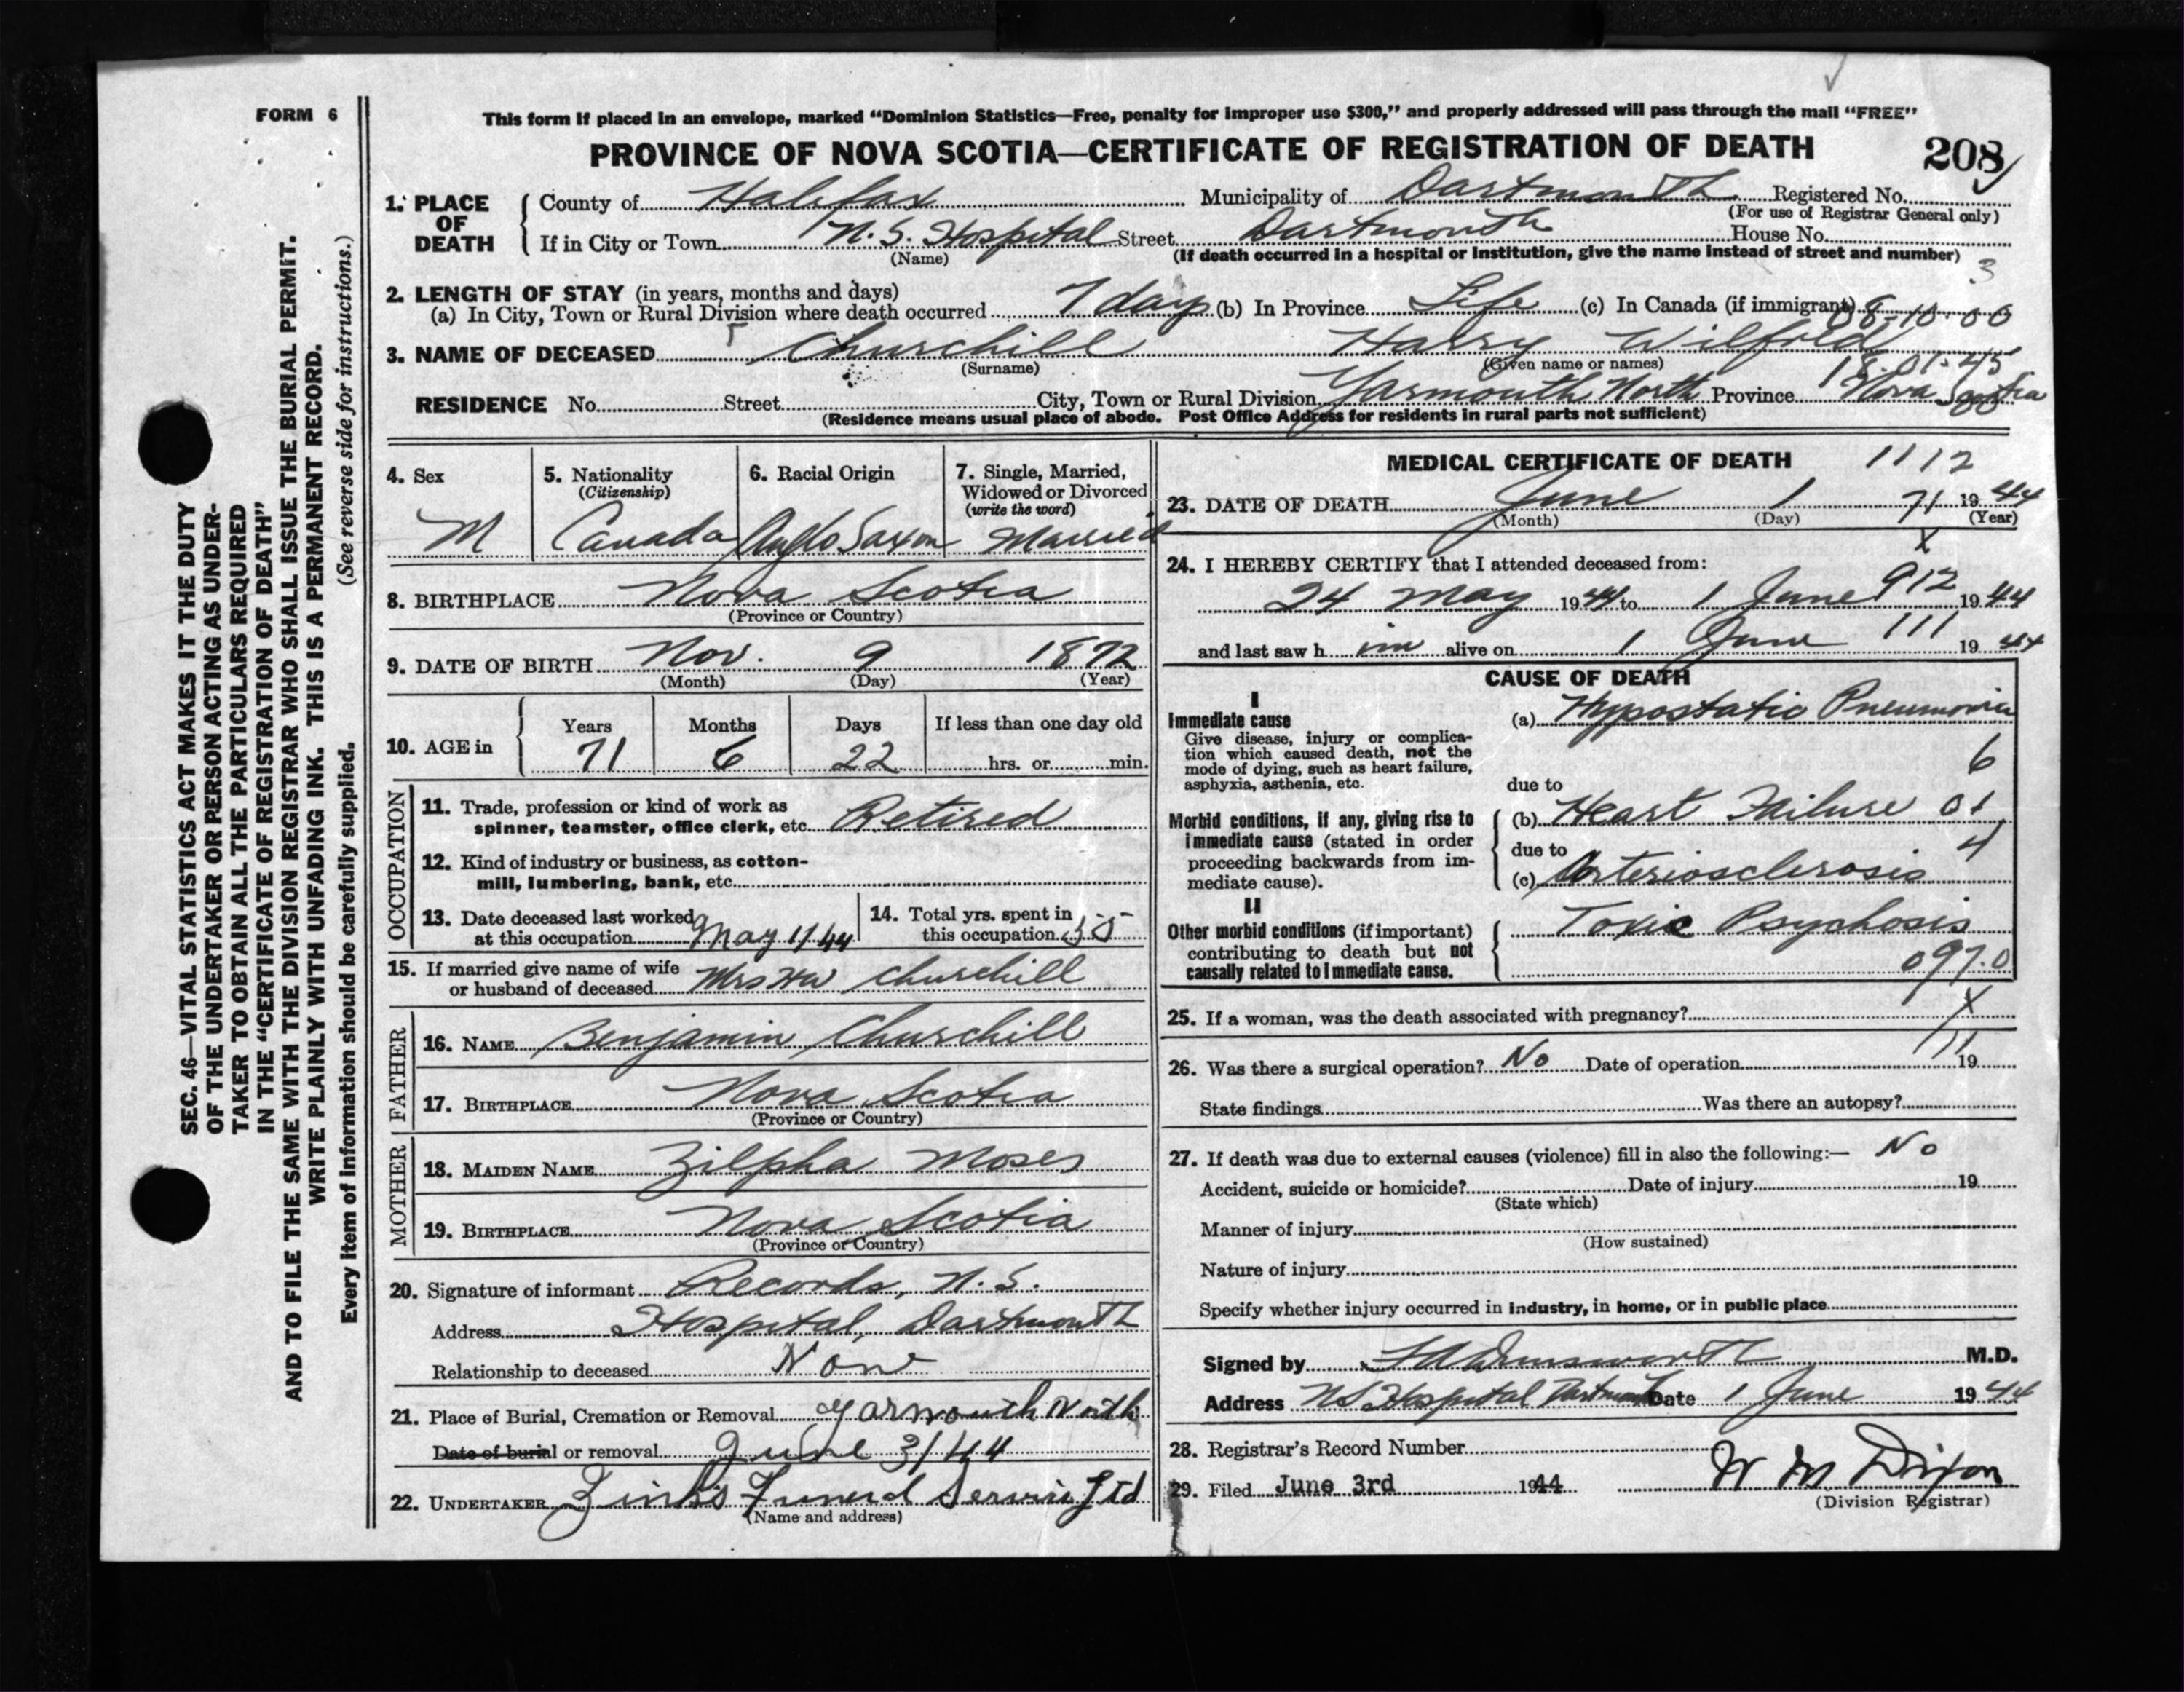 FORM 6
This form if placed in an envelope, marked “Dominion Statistics—Free, penalty for improper use $300,” and properly addressed will pass through the mail “FREE”
PROVINCE OF NOVA SCOTIA—CERTIFICATE OF REGISTRATION OF DEATH
208
1. PLACE OF DEATH
County of Halifax Municipality of Dartmouth Registered No.
(For use of Registrar General only)
If in City or Town N.S. Hospital Street Dartmouth House No.
(Name) (If death occurred in a hospital or institution, give the name instead of street and number)
3
2. LENGTH OF STAY (in years, months and days)
(a) In City, Town or Rural Division where death occurred 7 days (b) In Province Life (c) In Canada (if immigrant)
08-10-00
3. NAME OF DECEASED Churchill Harry Wilfred
(Surname) (Given name or names)
18-01-45
RESIDENCE No. Street City, Town or Rural Division Yarmouth North Province Nova Scotia
(Residence means usual place of abode. Post Office Address for residents in rural parts not sufficient)
4. Sex
M
5. Nationality
(Citizenship)
Canada
6. Racial Origin
Anglo Saxon
7. Single, Married,
Widowed or Divorced
(write the word)
Married
8. BIRTHPLACE Nova Scotia
(Province or Country)
9. DATE OF BIRTH Nov. 9 1872
(Month) (Day) (Year)
10. AGE in
Years Months Days If less than one day old
71 6 22 hrs. or min.
OCCUPATION
11. Trade, profession or kind of work as
spinner, teamster, office clerk, etc. Retired
12. Kind of industry or business, as cotton-
mill, lumbering, bank, etc.
13. Date deceased last worked
at this occupation May 1/44
14. Total yrs. spent in
this occupation 55
15. If married give name of wife
or husband of deceased Mrs HW Churchill
FATHER
16. NAME Benjamin Churchill
17. BIRTHPLACE Nova Scotia
(Province or Country)
MOTHER
18. MAIDEN NAME Zilpha Moses
19. BIRTHPLACE Nova Scotia
(Province or Country)
20. Signature of informant Records, N.S.
Address Hospital, Dartmouth
Relationship to deceased Non
21. Place of Burial, Cremation or Removal Yarmouth North
Date of burial or removal June 3/44
22. UNDERTAKER Zink's Funeral Service Ltd
(Name and address)
MEDICAL CERTIFICATE OF DEATH
1112
23. DATE OF DEATH June 1 71 1944
(Month) (Day) (Year)
X
24. I HEREBY CERTIFY that I attended deceased from:
24 May 1944 to 1 June 912 1944
and last saw him alive on 1 June 111 1944
CAUSE OF DEATH
I
Immediate cause
Give disease, injury or complica-
tion which caused death, not the
mode of dying, such as heart failure,
asphyxia, asthenia, etc.
(a) Hypostatic Pneumonia
6
due to
Morbid conditions, if any, giving rise to
immediate cause (stated in order
proceeding backwards from im-
mediate cause).
(b) Heart Failure 01
due to 4
(c) Arteriosclerosis
II
Other morbid conditions (if important)
contributing to death but not
causally related to immediate cause.
Toxic Psychosis
097.0
25. If a woman, was the death associated with pregnancy? X
26. Was there a surgical operation? No Date of operation 11 19
State findings Was there an autopsy?
27. If death was due to external causes (violence) fill in also the following:— No
Accident, suicide or homicide? Date of injury 19
(State which)
Manner of injury
(How sustained)
Nature of injury
Specify whether injury occurred in industry, in home, or in public place
Signed by M.D.
Address NS Hospital Dartmouth Date 1 June 1944
28. Registrar's Record Number
29. Filed June 3rd 1944 W M Dixon
(Division Registrar)
SEC. 46—VITAL STATISTICS ACT MAKES IT THE DUTY
OF THE UNDERTAKER OR PERSON ACTING AS UNDER-
TAKER TO OBTAIN ALL THE PARTICULARS REQUIRED
IN THE “CERTIFICATE OF REGISTRATION OF DEATH”
AND TO FILE THE SAME WITH THE DIVISION REGISTRAR WHO SHALL ISSUE THE BURIAL PERMIT.
WRITE PLAINLY WITH UNFADING INK. THIS IS A PERMANENT RECORD.
Every item of information should be carefully supplied. (See reverse side for instructions.)